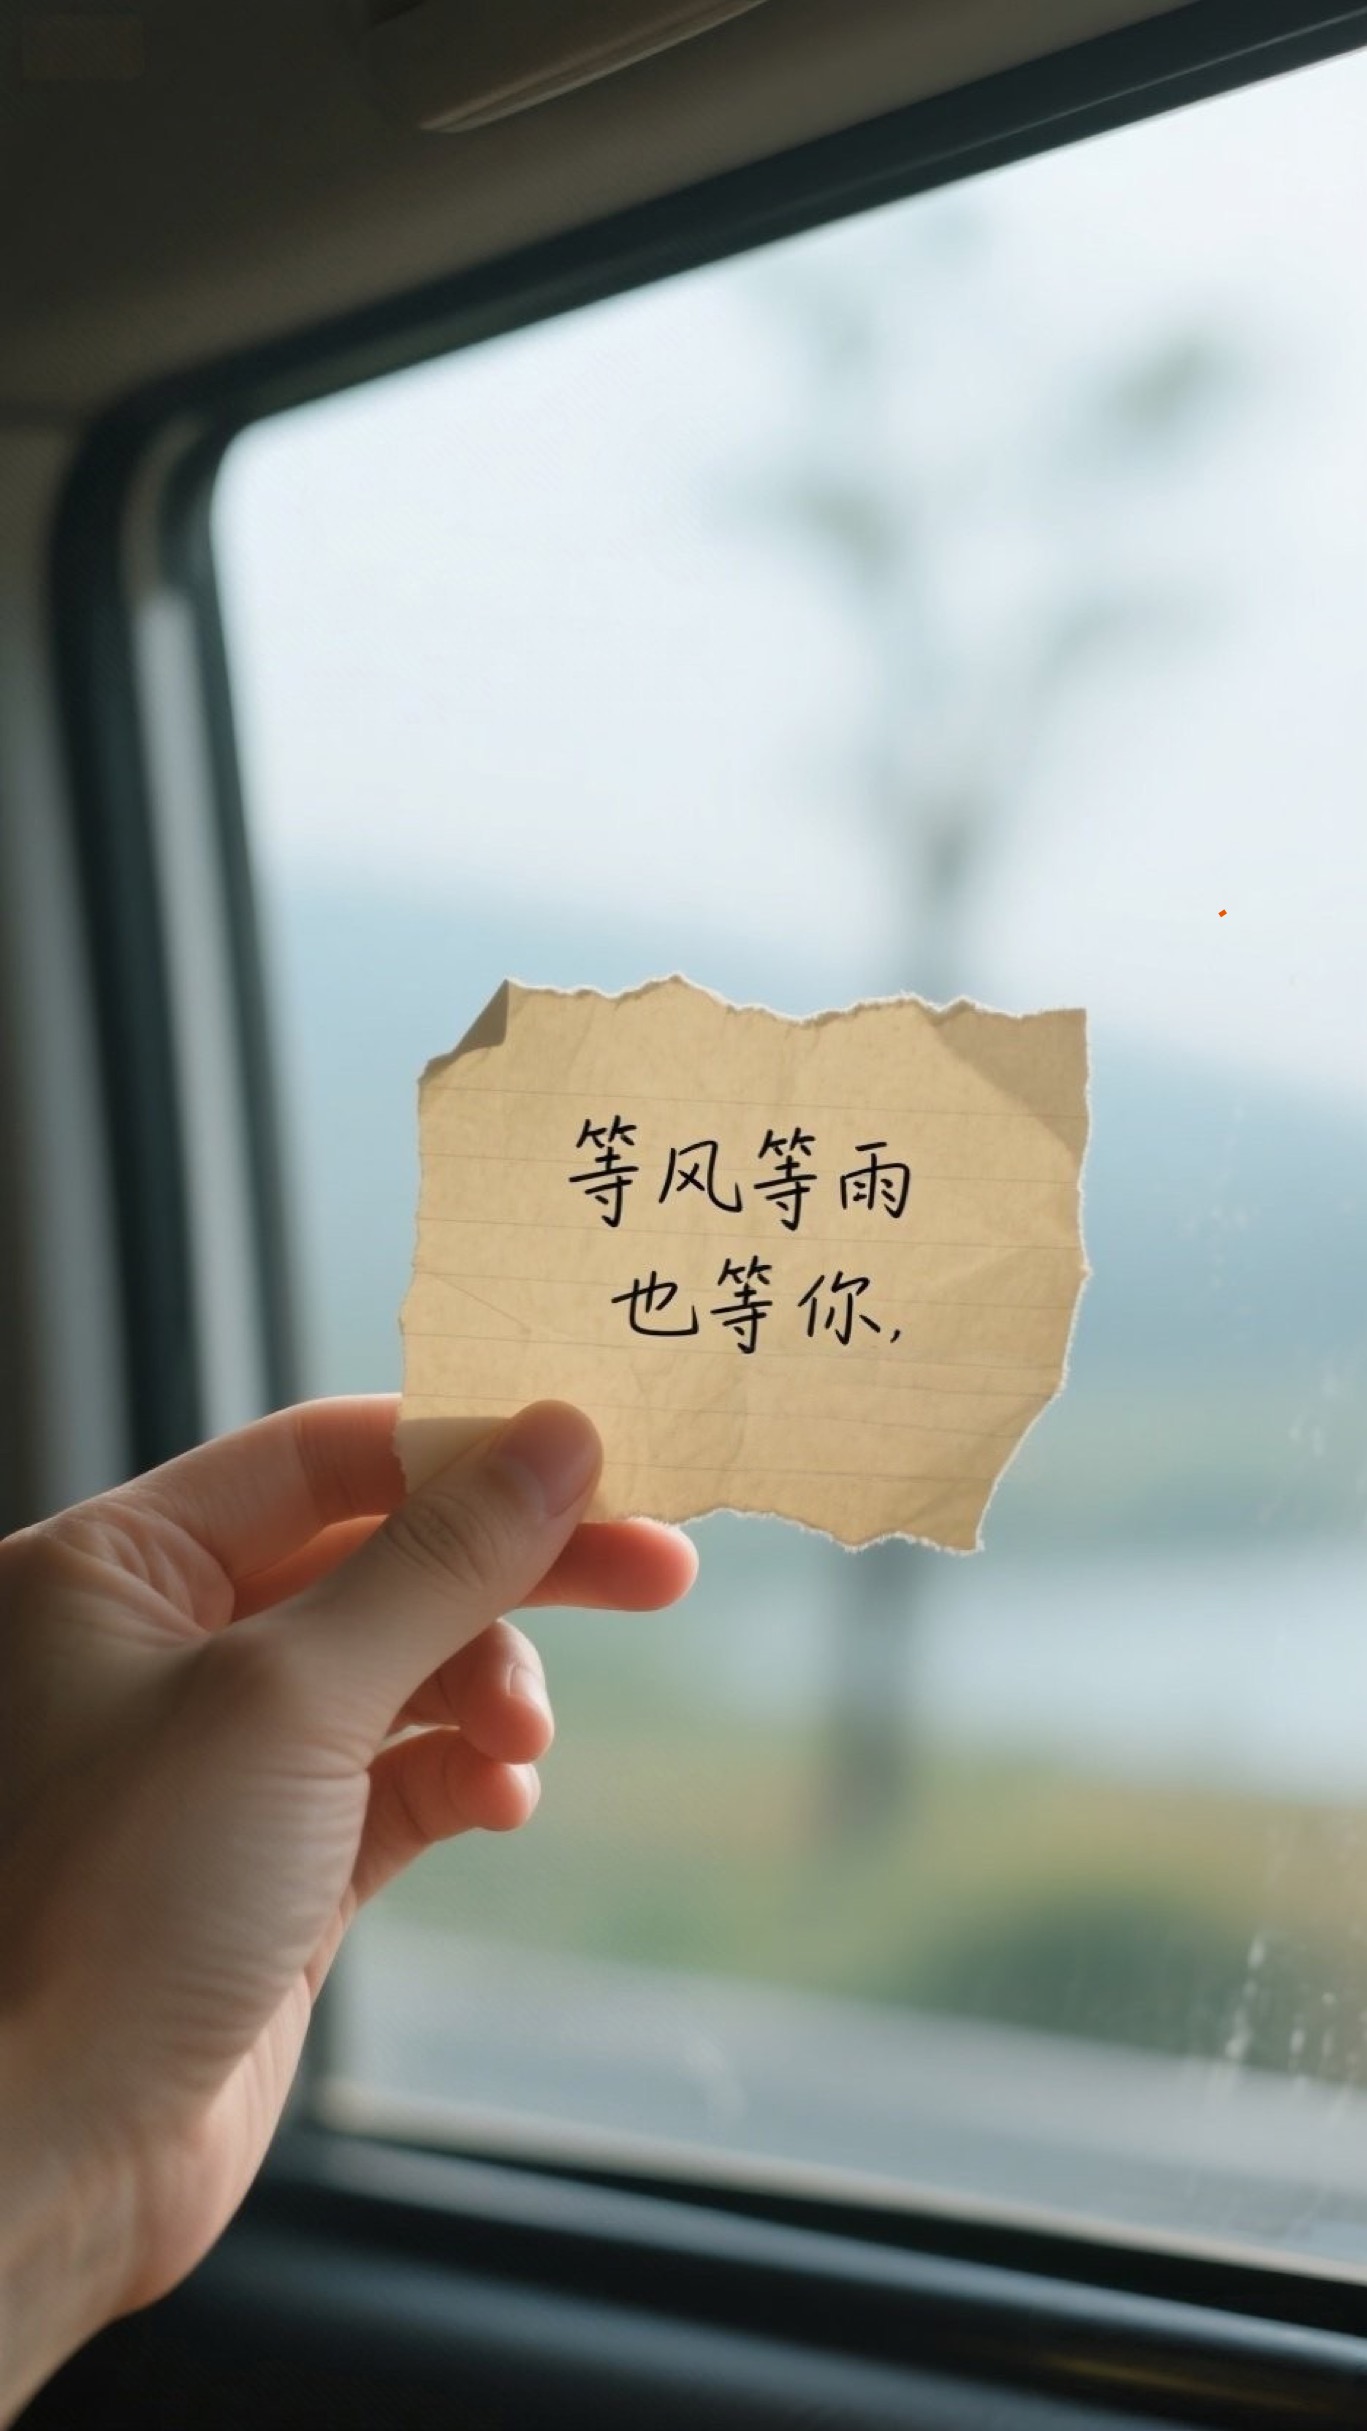 等风等雨
也等你,